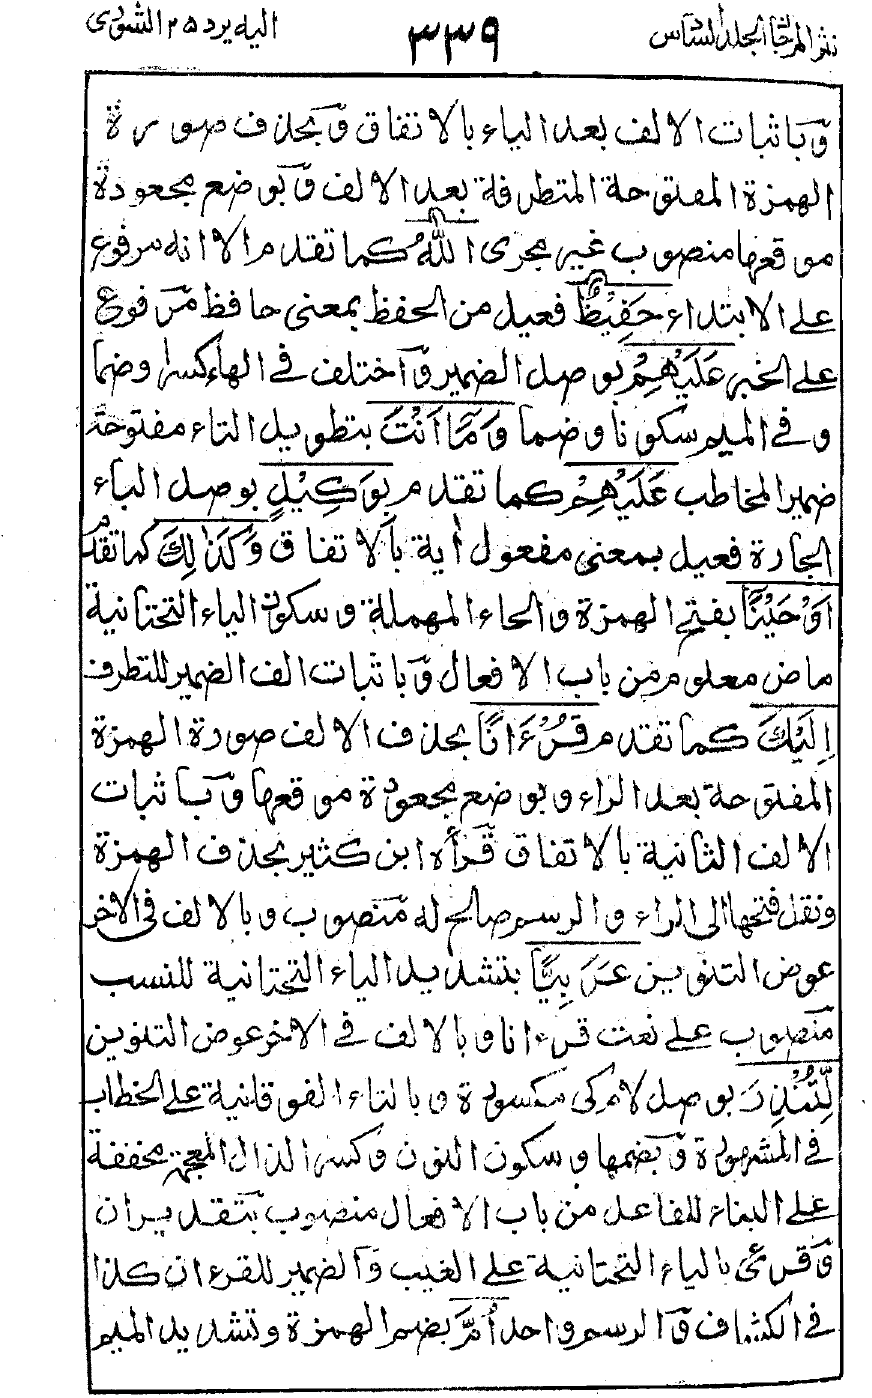 نثر المرجان الجلد السادس ٣٣٩ اليه يرد ٢٥ الشورى
وَبا ثبات الالف بعد الياء بالاتفاق وَبحذف صورة
الهمزة المفتوحة المتطرفة بعد الالف وَبوضع مجعودة
موقعها منصوب غير مجرى اللّٰهُ كما تقدم الا انه مرفوع
على الابتداء حَفِيْظٌ فعيل من الحفظ بمعنى حافظ مرفوع
على الخبر عَلَيْهِمْ بوصل الضمير وَاختلف في الهاء كسرا وضما
و في الميم سكونا و ضما وَمَآ اَنْتَ بتطويل التاء مفتوحة
ضمير المخاطب عَلَيْهِمْ كما تقدم بِوَكِيْلٍ بوصل الباء
الجارة فعيل بمعنى مفعول اٰية بالاتفاق وَكَذٰلِكَ كما تقدم
اَوْحَيْنَآ بفتح الهمزة و الحاء المهملة و سكون الياء التحتانية
ماض معلوم من باب الافعال وَبا ثبات الف الضمير للتطرف
اِلَيْكَ كما تقدم قُرْءَانًا بحذف الالف صورة الهمزة
المفتوحة بعد الراء و بوضع مجعودة موقعها وَبا ثبات
الالف الثانية بالاتفاق قَرأه ابن كثير بحذف الهمزة
ونقل فتحها الى الراء و الرسم صالح له منصوب و بالالف فى الاخر
عوض التنوين عَرَبِيًّا بتشديد الياء التحتانية للنسب
منصوب على نعت قرءانا و بالالف في الاخر عوض التنوين
لِّتُنْذِرَ بوصل لام كى مكسورة و بالتاء الفوقانية على الخطاب
في المشهورة وَبضمها و سكون النون وَكسر الذال المعجمة مخففة
على البناء للفاعل من باب الافعال منصوب بتقدير ان
وَقرئ بالياء التحتانية على الغيب وَالضمير للقرءان كذا
في الكشاف وَالرسم واحد اُمَّ بضم الهمزة و تشديد الميم